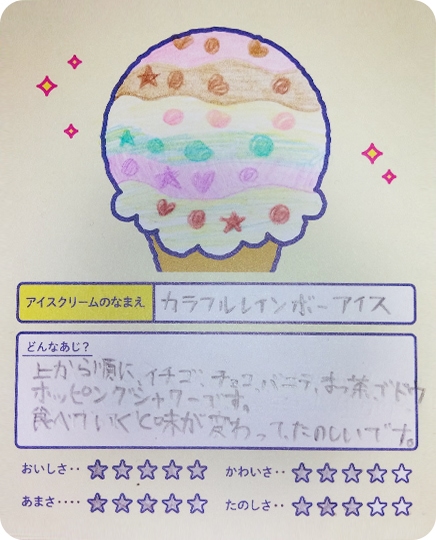 アイスクリームのなまえ
カラフルレインボーアイス
どんなあじ?
上から順に、イチゴ、チョコ、バニラ、まっ茶、ブドウ
ホッピングシャワーです。
食べていくと味が変わって、たのしいです。
おいしさ‥ ★★★★★
かわいさ‥ ☆☆☆☆☆
あまさ‥‥ ★★★★★
たのしさ‥ ★★★☆☆